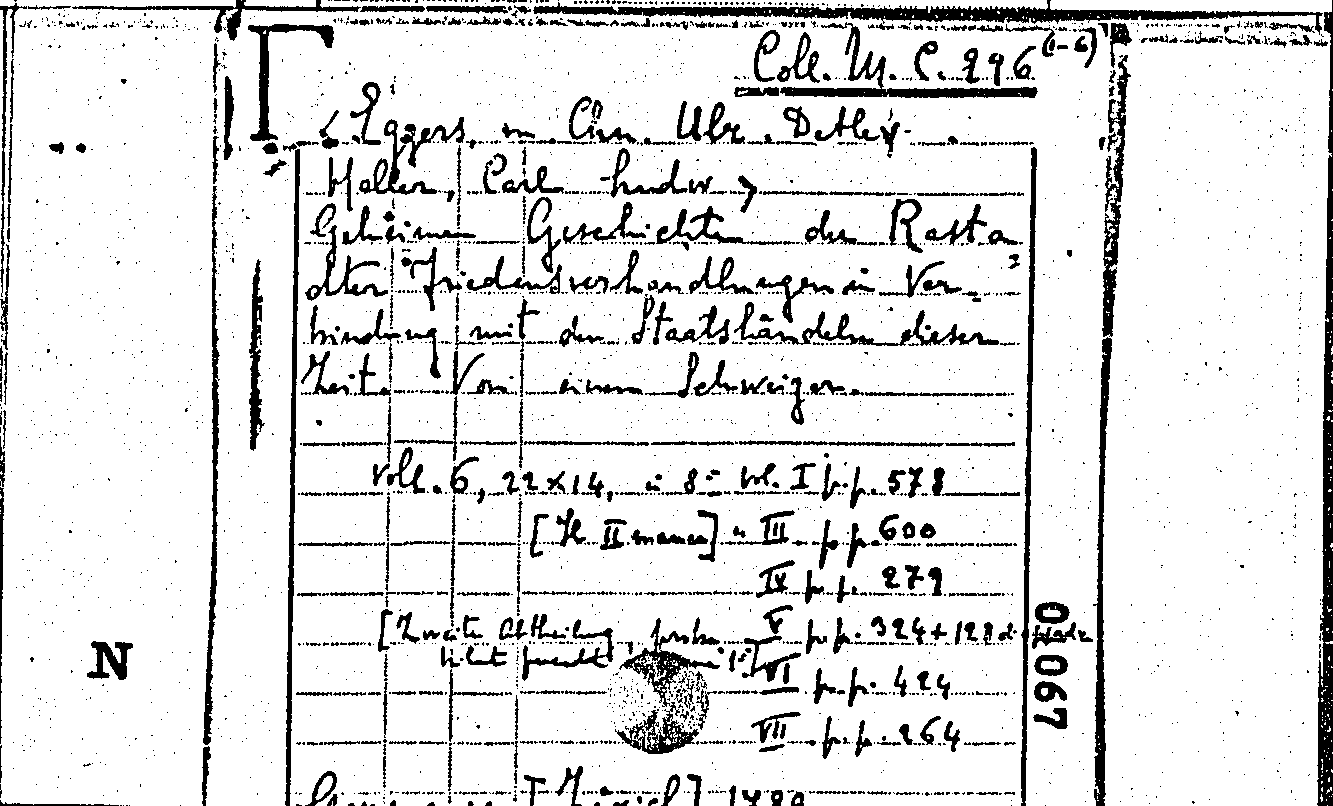 Coll. M. C. 296 (1-6)
< Eggers, Chr. Ulr. Detlev.
Haller, Carl Ludw >
Geheimen Geschichten der Rasta
dter Friedensverhandlungen in Ver-
bindung mit den Staatshändeln dieser
Zeit. Von einem Schweizer.
voll. 6, 22×14, in 8º vol. I p.p. 578
[Il II manca] " III p.p. 600
IV p.p. 279
[Zweite Abtheilung, V p.p. 324+128 di
VI p.p. 424
VII p.p. 264
[Zürich] 1789
02067
N